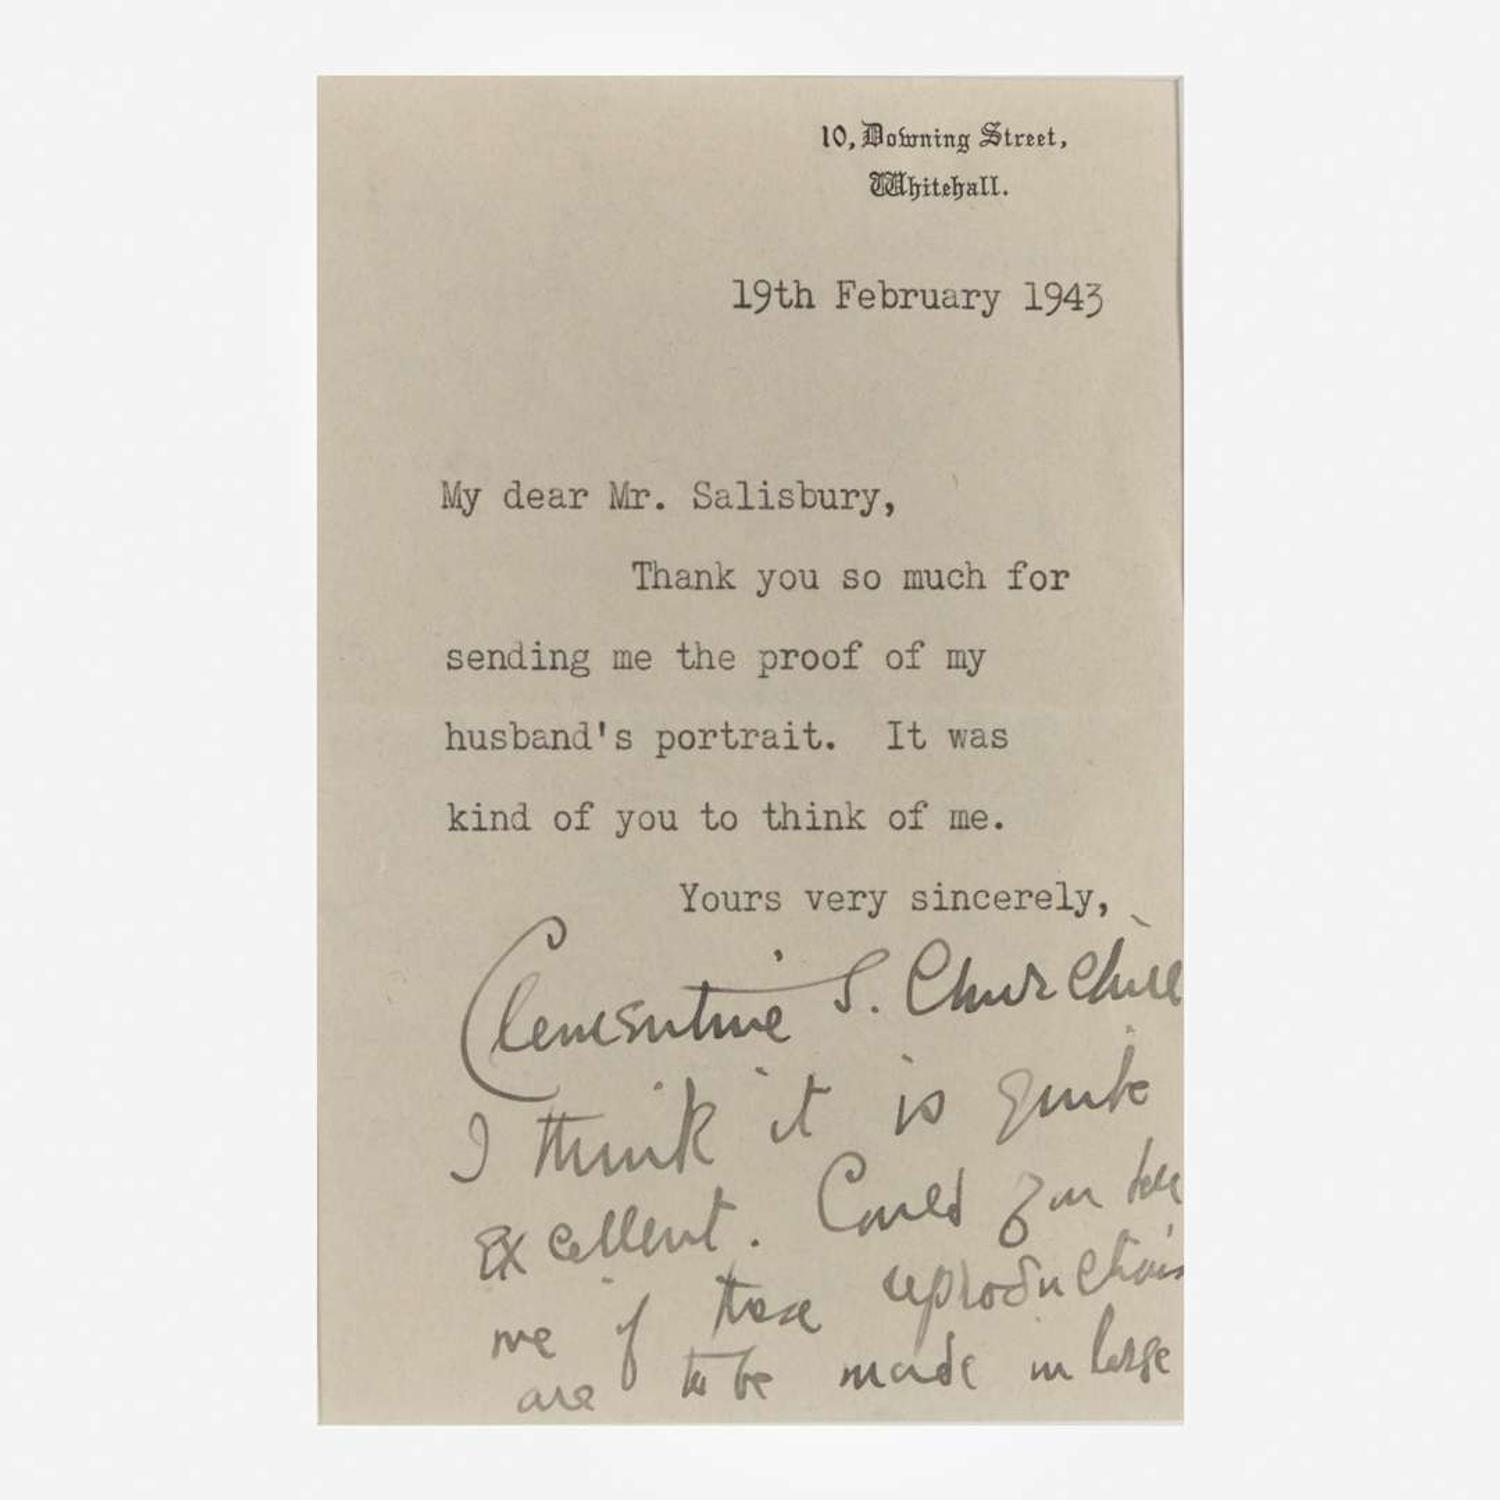 10, Downing Street,
Whitehall.
19th February 1943
My dear Mr. Salisbury,
Thank you so much for
sending me the proof of my
husband's portrait. It was
kind of you to think of me.
Yours very sincerely,
Clementine S. Churchill
I think it is quite
excellent. Could you tell
me if these reproductions
are to be made in large